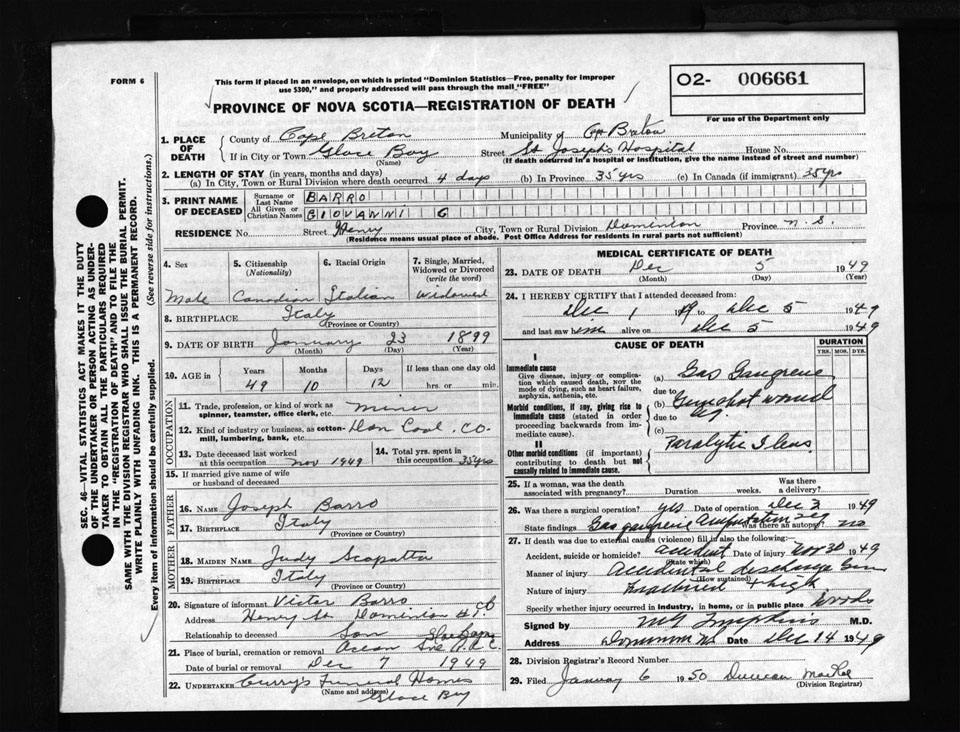 FORM 6
This form if placed in an envelope, on which is printed "Dominion Statistics—Free, penalty for improper
use $300," and properly addressed will pass through the mail "FREE"
PROVINCE OF NOVA SCOTIA—REGISTRATION OF DEATH
O2- 006661
For use of the Department only
SEC. 46—VITAL STATISTICS ACT MAKES IT THE DUTY
OF THE UNDERTAKER OR PERSON ACTING AS UNDER-
TAKER TO OBTAIN ALL THE PARTICULARS REQUIRED
IN THE "REGISTRATION OF DEATH" AND TO FILE THE
SAME WITH THE DIVISION REGISTRAR WHO SHALL ISSUE THE BURIAL PERMIT.
WRITE PLAINLY WITH UNFADING INK. THIS IS A PERMANENT RECORD.
Every item of information should be carefully supplied. (See reverse side for instructions.)
1. PLACE OF DEATH County of Cape Breton Municipality of Cape Breton
If in City or Town Glace Bay Street St Josephs Hospital House No.
(Name) (If death occurred in a hospital or institution, give the name instead of street and number)
2. LENGTH OF STAY (in years, months and days)
(a) In City, Town or Rural Division where death occurred 4 days (b) In Province 35 yrs (c) In Canada (if immigrant) 35 yrs
3. PRINT NAME OF DECEASED Surname or Last Name BARRO
All Given or Christian Names GIOVANNI G
RESIDENCE No. Street Henry City, Town or Rural Division Dominion Province N.S.
(Residence means usual place of abode. Post Office Address for residents in rural parts not sufficient)
4. Sex 5. Citizenship (Nationality) 6. Racial Origin 7. Single, Married, Widowed or Divorced (write the word)
Male Canadian Italian Widowed
8. BIRTHPLACE Italy
(Province or Country)
9. DATE OF BIRTH January 23 1899
(Month) (Day) (Year)
10. AGE in Years Months Days If less than one day old
49 10 12 hrs. or min.
OCCUPATION
11. Trade, profession, or kind of work as spinner, teamster, office clerk, etc. miner
12. Kind of industry or business, as cotton-mill, lumbering, bank, etc. Dom Coal Co.
13. Date deceased last worked at this occupation Nov 1949
14. Total yrs. spent in this occupation 35 yrs
15. If married give name of wife or husband of deceased
FATHER
16. NAME Joseph Barro
17. BIRTHPLACE Italy
(Province or Country)
MOTHER
18. MAIDEN NAME Judy
19. BIRTHPLACE Italy
(Province or Country)
20. Signature of informant Victor Barro
Address Henry St Dominion
Relationship to deceased Son
21. Place of burial, cremation or removal
Date of burial or removal Dec 7 1949
22. UNDERTAKER Curry's Funeral Homes
(Name and address) Glace Bay
MEDICAL CERTIFICATE OF DEATH
23. DATE OF DEATH Dec 5 1949
(Month) (Day) (Year)
24. I HEREBY CERTIFY that I attended deceased from:
Dec 1 19 to Dec 5 1949
and last saw him alive on Dec 5 1949
CAUSE OF DEATH DURATION
YRS. MOS. DYS.
I
Immediate cause
Give disease, injury or complication which caused death, NOT the mode of dying, such as heart failure, asphyxia, asthenia, etc.
(a) Gas Gangrene
due to
Morbid conditions, if any, giving rise to immediate cause (stated in order proceeding backwards from immediate cause).
(b) Gunshot wound
due to leg
(c)
II
Other morbid conditions (if important) contributing to death but not causally related to immediate cause.
Paralytic Ileus
25. If a woman, was the death associated with pregnancy? Duration weeks. Was there a delivery?
26. Was there surgical operation? yes Date of operation Dec 3 1949
State findings Gas gangrene Amputation leg Was there an autopsy? no
27. If death was due to external causes (violence) fill in also the following:—
Accident, suicide or homicide? accident Date of injury Nov 30 1949
(State which)
Manner of injury Accidental discharge gun
(How sustained)
Nature of injury Fractured thigh
Specify whether injury occurred in industry, in home, or in public place Woods
Signed by Tompkins M.D.
Address Dominion NS Date Dec 14 1949
28. Division Registrar's Record Number
29. Filed January 6 1950 Duncan MacRae
(Division Registrar)